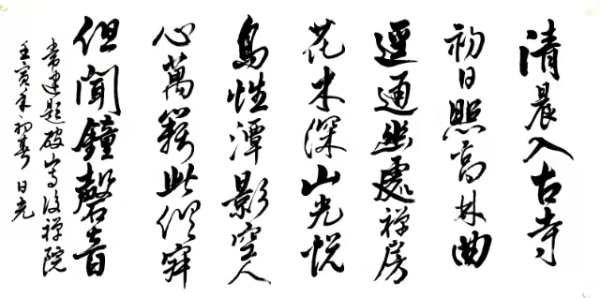 清晨入古寺
初日照高林曲
逕通幽處禪房
花木深山光悦
鳥性潭影空人
心萬籟此俱寂
但聞鐘磬音
常建題破山寺後禪院
壬寅年初春日光